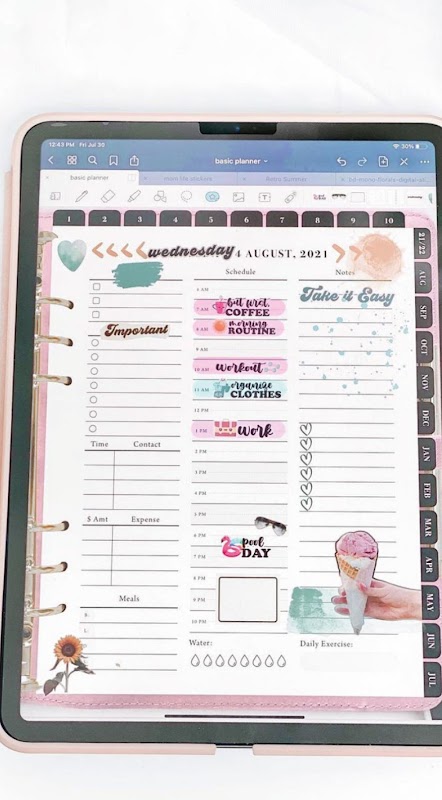 12:43 PM Fri Jul 30
30%
basic planner
basic planner
more life stickers
Retro Summer
1 2 3 4 5 6 7 8 9 10
wednesday 4 AUGUST, 2021
Schedule
Notes
6 AM
Take it Easy
7 AM but first, COFFEE
8 AM morning ROUTINE
Important
9 AM
10 AM workout
11 AM organize CLOTHES
12 PM
1 PM Work
2 PM
Time Contact
3 PM
4 PM
5 PM
$ Amt Expense
6 PM
7 PM pool DAY
8 PM
Meals
9 PM
10 PM
B:
L:
Water:
Daily Exercise:
21/22
AUG
SEP
OCT
NOV
DEC
JAN
FEB
MAR
APR
MAY
JUN
JUL